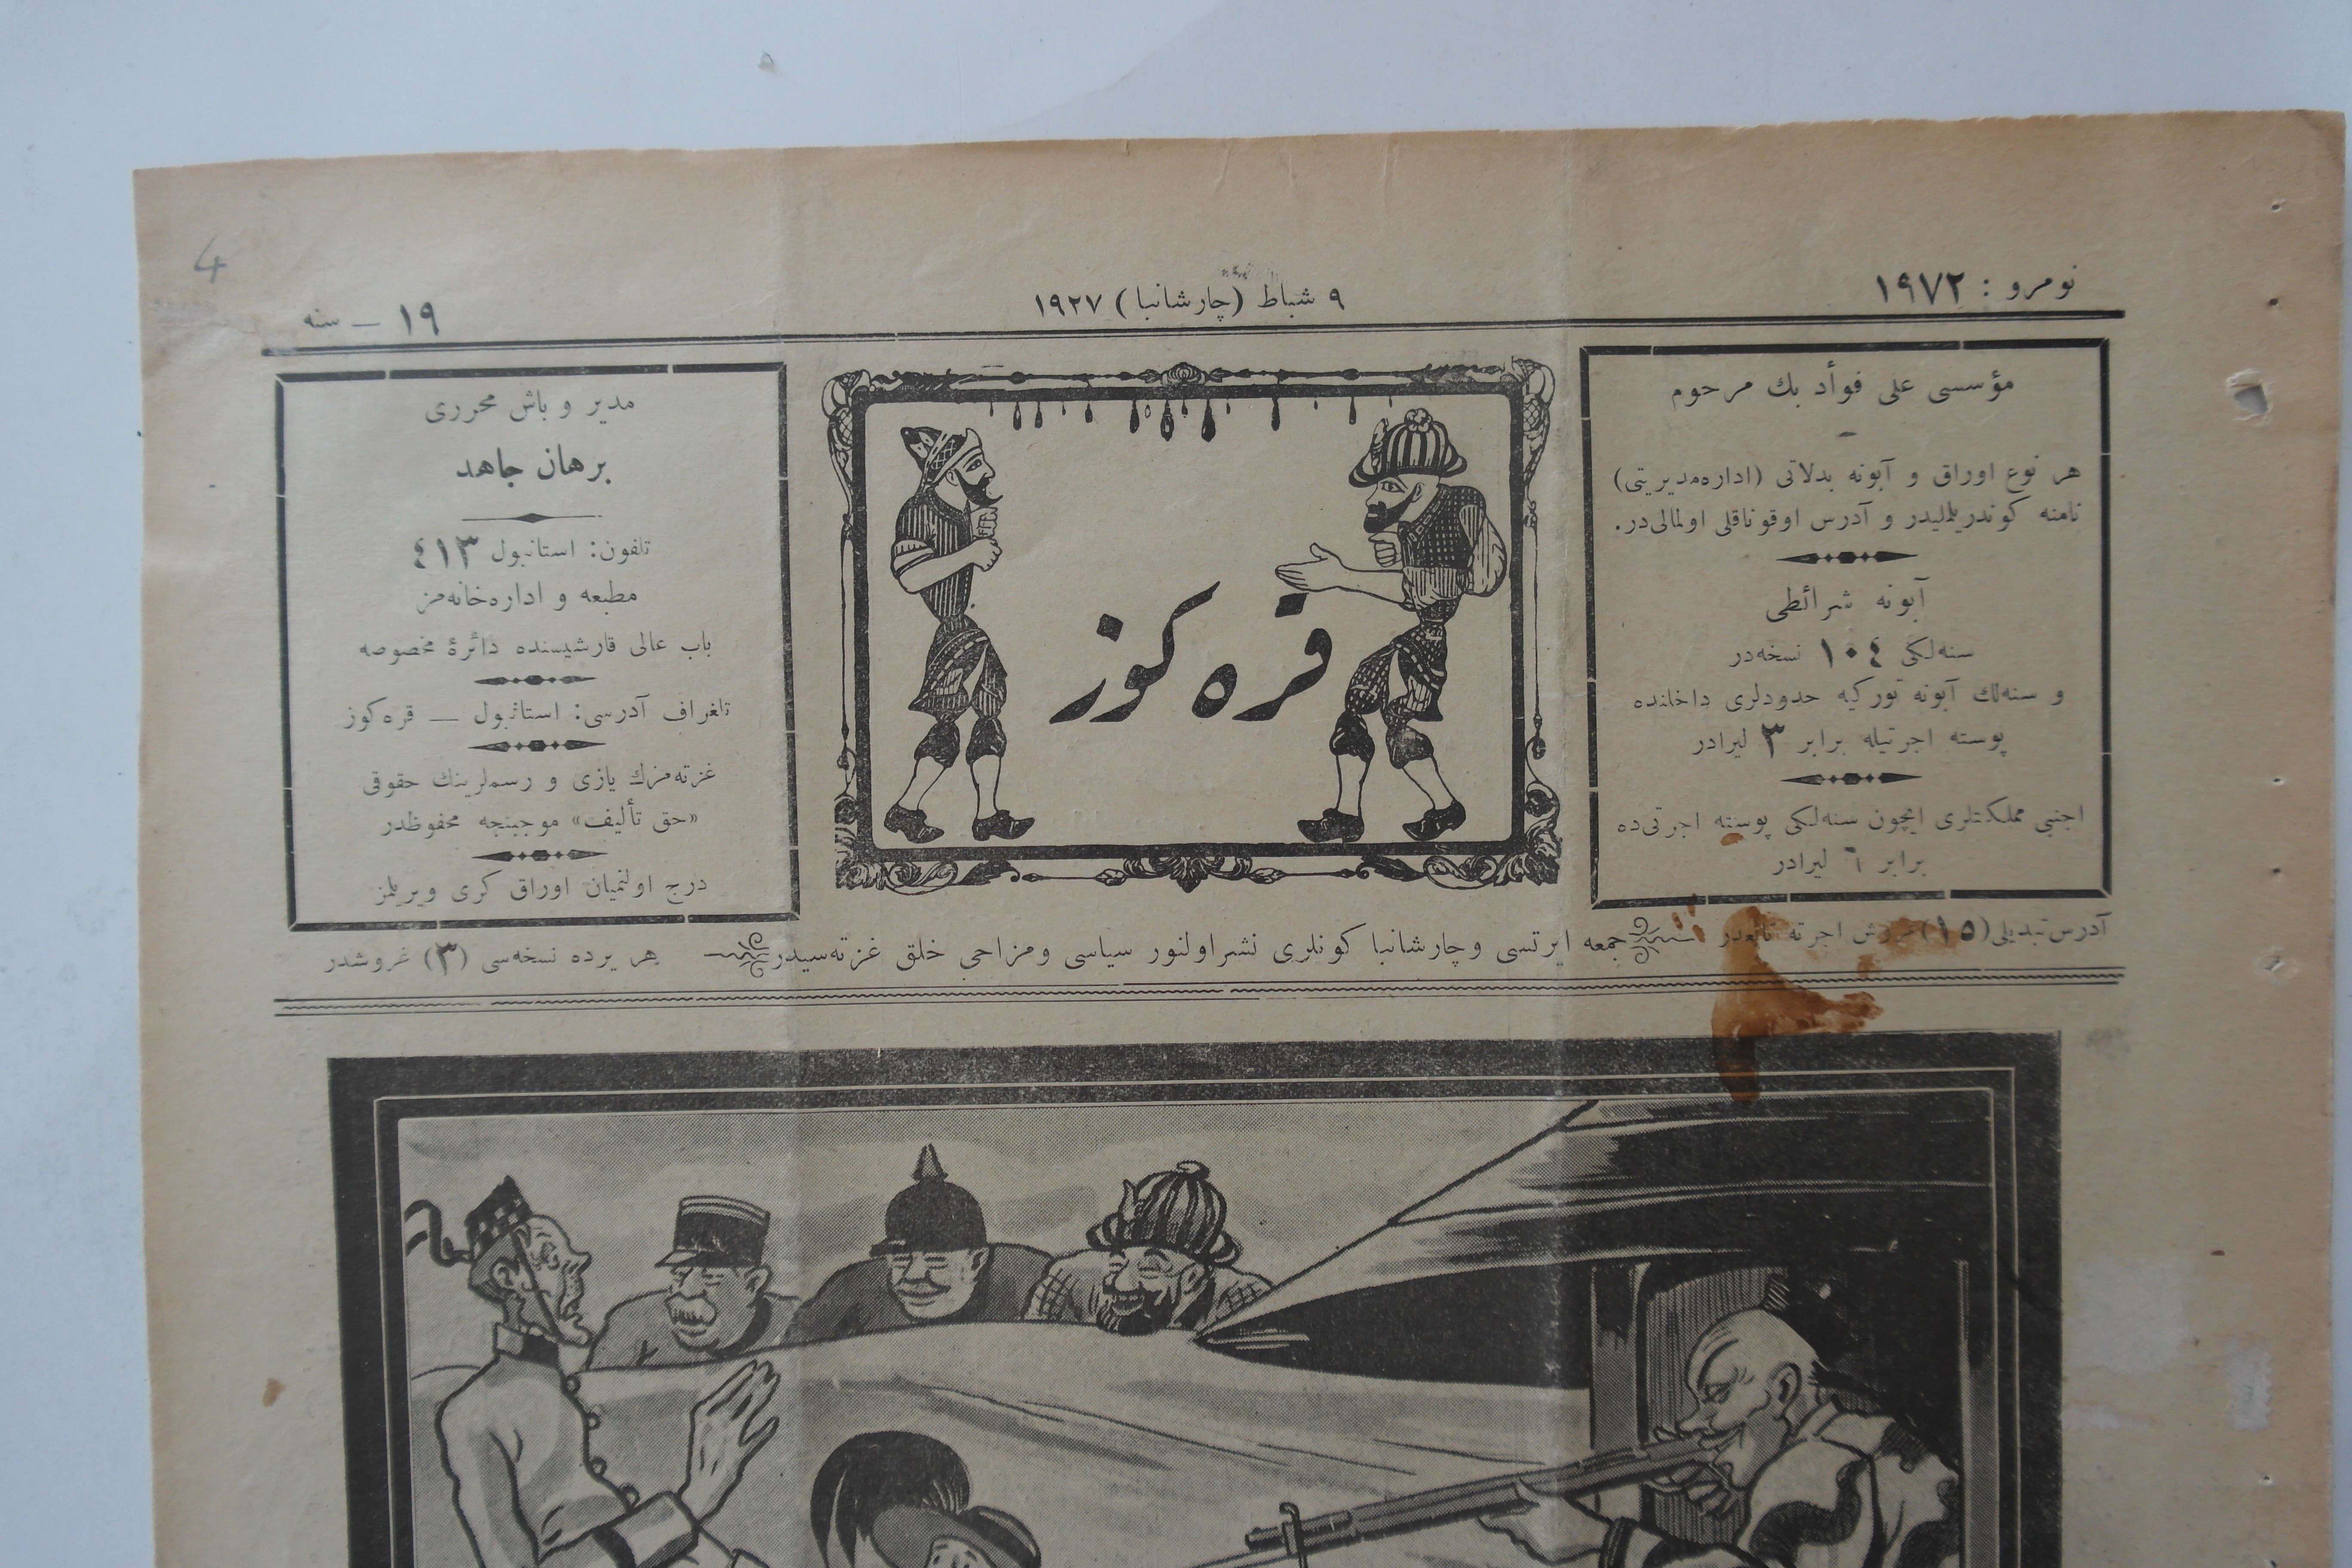 4
نومرو : ١٩٧٢
٩ شباط (چارشانبا) ١٩٢٧
١٩ — سنه
مؤسسی علی فوأد بك مرحوم
هر نوع اوراق و آبونه بدلاتی (اداره‌مدیریتی)
نامنه كوندریلملیدر و آدرس اوقوناقلی اولمالی‌در.
آبونه شرائطی
سنه‌لكی ١٠٤ نسخه‌در
و سنه‌لك آبونه توركیه حدودلری داخلنده
پوسته اجرتیله برابر ٣ لیرادر
اجنبی مملكتلری ایچون سنه‌لكی پوسته اجرتی‌ده
برابر ٦ لیرادر
قره‌كوز
مدیر و باش محرری
برهان جاهد
تلفون: استانبول ٤١٣
مطبعه و اداره‌خانه‌مز
باب عالی قارشیسنده دائرۀ مخصوصه
تلغراف آدرسی: استانبول — قره‌كوز
غزته‌مزك یازی و رسملرینك حقوقی
«حق تألیف» موجبنجه محفوظدر
درج اولنمیان اوراق كری ویریلمز
آدرس تبدیلی (١٥) غروش اجرته تابعدر
جمعه ایرتسی وچارشانبا كونلری نشراولنور سیاسی ومزاحی خلق غزته‌سیدر
هر یرده نسخه‌سی (٣) غروشدر